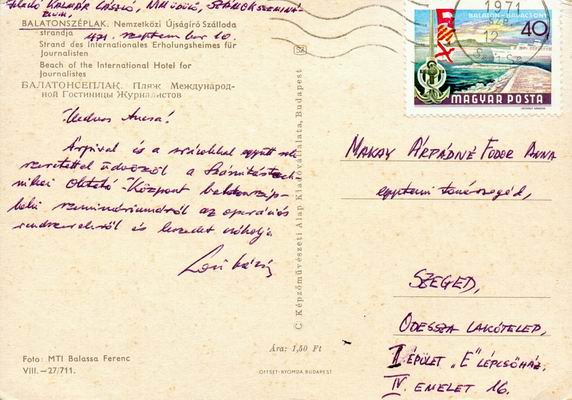 Feladó KALMÁR LÁSZLÓ, NIM ÜDÜLŐ, SZÁMOK SZEMINÁ-
BALATONSZÉPLAK. Nemzetközi Újságíró Szálloda
strandja
1971. szeptember 10.
Strand des Internationales Erholungsheimes für
Journalisten
Beach of the International Hotel for
Journalistes
БАЛАТОНСЕПЛАК. Пляж Международ-
ной Гостиницы Журналистов
Kedves Anna!
Árpival és a srácokkal együtt
szeretettel üdvözöl a Számítástech-
nikai Oktató Központ balatonszép-
laki szemináriumáról az operációs
rendszerekről és
Laci bácsi
Foto: MTI Balassa Ferenc
VIII. — 27/711.
SZ
C Képzőművészeti Alap Kiadóvállalata, Budapest
Ára: 1,50 Ft
OFFSET-NYOMDA BUDAPEST
1971
12
BALATON-BALATONY
40f
MAGYAR POSTA
MAKAY ÁRPÁDNÉ FODOR ANNA
egyetemi tanársegéd,
SZEGED,
ODESSZA LAKÓTELEP,
I. ÉPÜLET „E" LÉPCSŐHÁZ.
IV. EMELET 16.